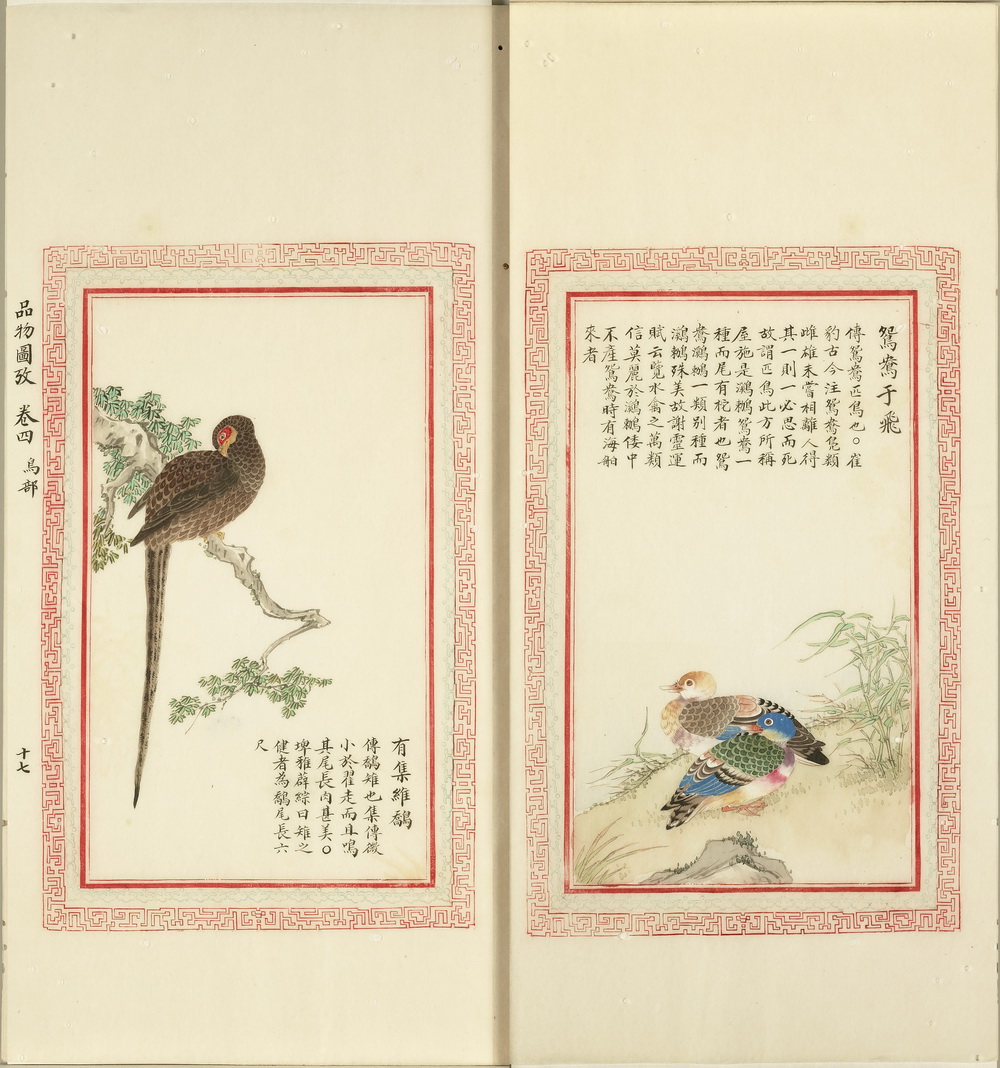 鴛鴦于飛
傳鴛鴦匹鳥也○崔
豹古今注鴛鴦鳧類
雌雄未嘗相離人得
其一則一必思而死
故謂匹鳥此方所稱
屋施是鸂鶒鴛鴦一
種而尾有柁者也鴛
鴦鸂鶒一類別種而
鸂鶒殊美故謝靈運
賦云覽水禽之萬類
信莫麗於鸂鶒倭中
不產鴛鴦時有海舶
來者
有集維鷮
傳鷮雉也集傳微
小於翟走而且鳴
其尾長肉甚美○
埤雅薜綜曰雉之
健者為鷮尾長六
尺
品物圖攷 卷四 鳥部 十七